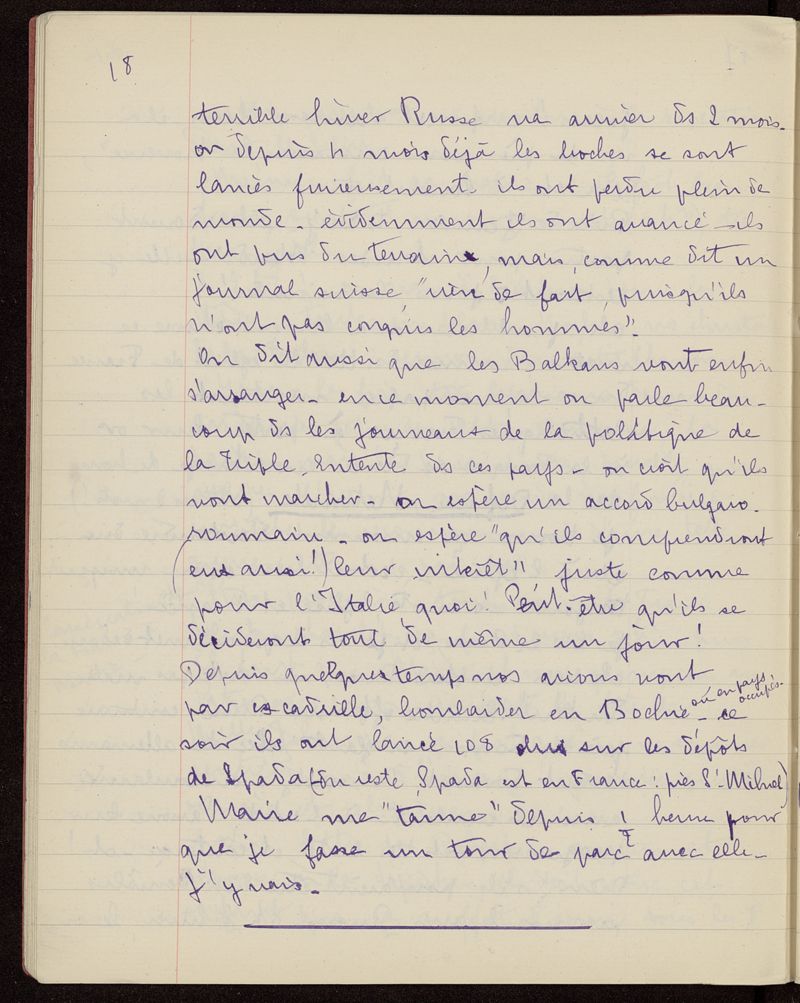 18
terrible hiver Russe va arriver ds 2 mois.
or depuis 4 mois déjà les boches se sont
lancés furieusement. ils ont perdu plein de
monde. évidemment ils ont avancé - ils
ont pris du terrain, mais, comme dit un
journal suisse, "rien de fait, puisqu'ils
n'ont pas conquis les hommes".
On dit aussi que les Balkans vont enfin
s'arranger - en ce moment on parle beau-
coup ds les journeaux de la politique de
la Triple-Entente ds ces pays - on croit qu'ils
vont marcher - on espère un accord bulgaro-
roumain - on espère "qu'ils comprendront
(eux aussi!) leur intérêt" juste comme
pour l'Italie, quoi! Peut-être qu'ils se
décideront tout de même un jour!
Depuis quelques temps nos avions vont
par escadrille, bombarder en Bochie - ce
ou en pays occupés.
soir ils ont lancé 108 obus sur les dépôts
de Spada (du reste, Spada est en France: près St-Mihiel)
Marie me "tanne" depuis 1 heure pour
que je fasse un tour de parc avec elle -
J'y vais.